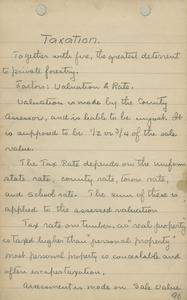 Taxation.
Together with fire, the greatest deterrent
to private forestry.
Factors: Valuation & Rate.
Valuation is made by the County
Assessor, and is liable to be unjust. It
is supposed to be 1/2 or 3/4 of the sale
value.
The Tax Rate depends on the uniform
state rate, county rate, town rate,
and school rate. The sum of these is
applied to the assessed valuation
Tax rate on timber, as real property
is taxed higher than personal property
most personal property is concealable and
often escapes taxation.
Assessment is made on Sale Value